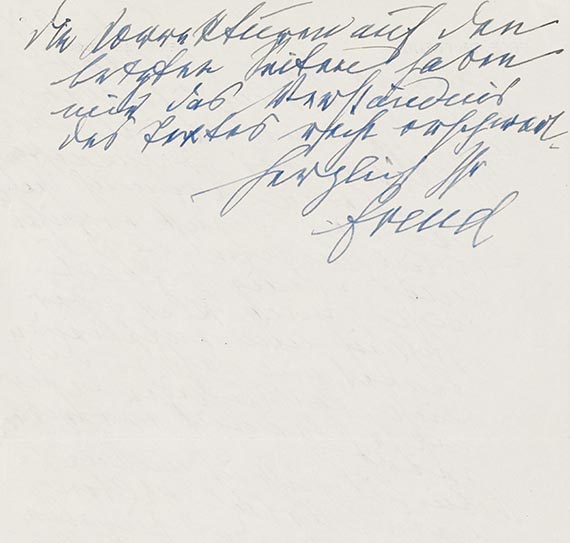 Die Correkturen auf den
letzten Seiten haben
mir das Verständnis
des Textes recht erschwert.
Herzlich Ihr
Freud